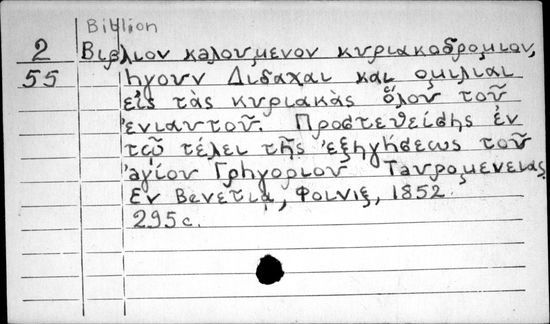 Biblion
2 Βιβλιον καλουμενον κυριακοδρομιον,
55 ἡγουν Διδαχαι και ομιλιαι
εἰς τὰς κυριακὰς ὅλου τοῦ
ἐνιαυτοῦ. Προστεθείσης ἐν
τῷ τέλει τῆς ἐξηγήσεως τοῦ
ἁγίου Γρηγορίου Ταυρομενειας.
Εν Βενετια, Φοινιξ, 1852.
295 с.